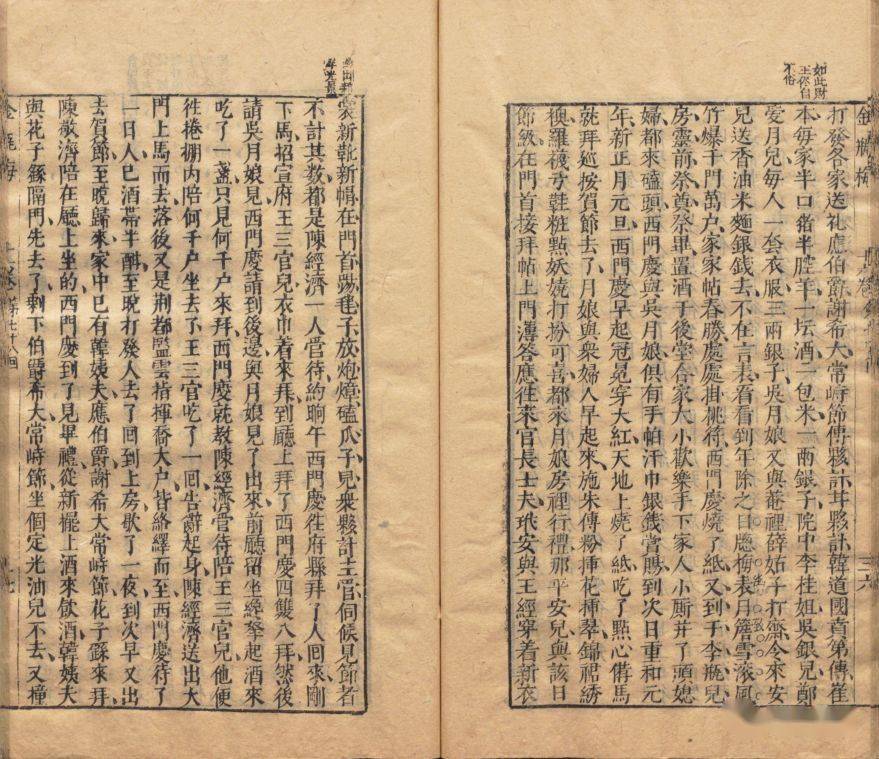 如此財
主
不俗
金瓶梅
打發各家送礼應伯爵謝希大常峙節傅夥計甘夥計韓道國賁第傳崔
本每家半口猪半腔羊一坛酒一包米一兩銀子院中李桂姐吳銀兒鄭
愛月兒每人一套衣服三兩銀子吳月娘又與菴裡薛姑子打齋令來安
兒送香油米麵銀錢去不在言表看看到年除之日牕梅表月簷雪滾風
竹爆千門萬户家家帖春勝處處掛桃符西門慶燒了紙又到于李瓶兒
房靈前祭奠祭畢置酒于後堂合家大小歡樂手下家人小厮并丫頭媳
婦都來磕頭西門慶與吳月娘俱有手帕汗巾銀錢賞賜到次日重和元
年新正月元旦西門慶早起冠冕穿大紅天地上燒了紙吃了點心俻馬
就拜巡按賀節去了月娘與衆婦人早起來施朱傅粉挿花挿翠錦裙綉
襖羅襪弓鞋粧點妖嬈打扮可喜都來月娘房裡行禮那平安兒與該日
節級在門首接拜帖上門簿答應徃來官長士夫玳安與王經穿着新衣
裳新靴新帽在門首踢毽子放炮㷮磕瓜子兒衆夥計主管伺候見節者
不計其数都是陳經濟一人管待約晌午西門慶徃府縣拜了人回來剛
下馬招宣府王三官兒衣巾着來拜到廳上拜了西門慶四雙八拜然後
請吳月娘見西門慶請到後邊與月娘見了出來前廳留坐纔拏起酒來
吃了一盞只見何千户來拜西門慶就教陳經濟管待陪王三官兒他便
徃捲棚内陪何千户坐去了王三官吃了一回告辭起身陳經濟送出大
門上馬而去落後又是荆都監雲指揮喬大户皆絡繹而至西門慶待了
一日人已酒帶半酣至晚打發人去了回到上房歇了一夜到次早又出
去賀節至晚歸來家中已有韓姨夫應伯爵謝希大常峙節花子繇來拜
陳敬濟陪在廳上坐的西門慶到了見畢禮從新擺上酒來飲酒韓姨夫
與花子繇隔門先去了剩下伯爵希大常峙節坐個定光油兒不去又撞
金瓶梅
第七十八回